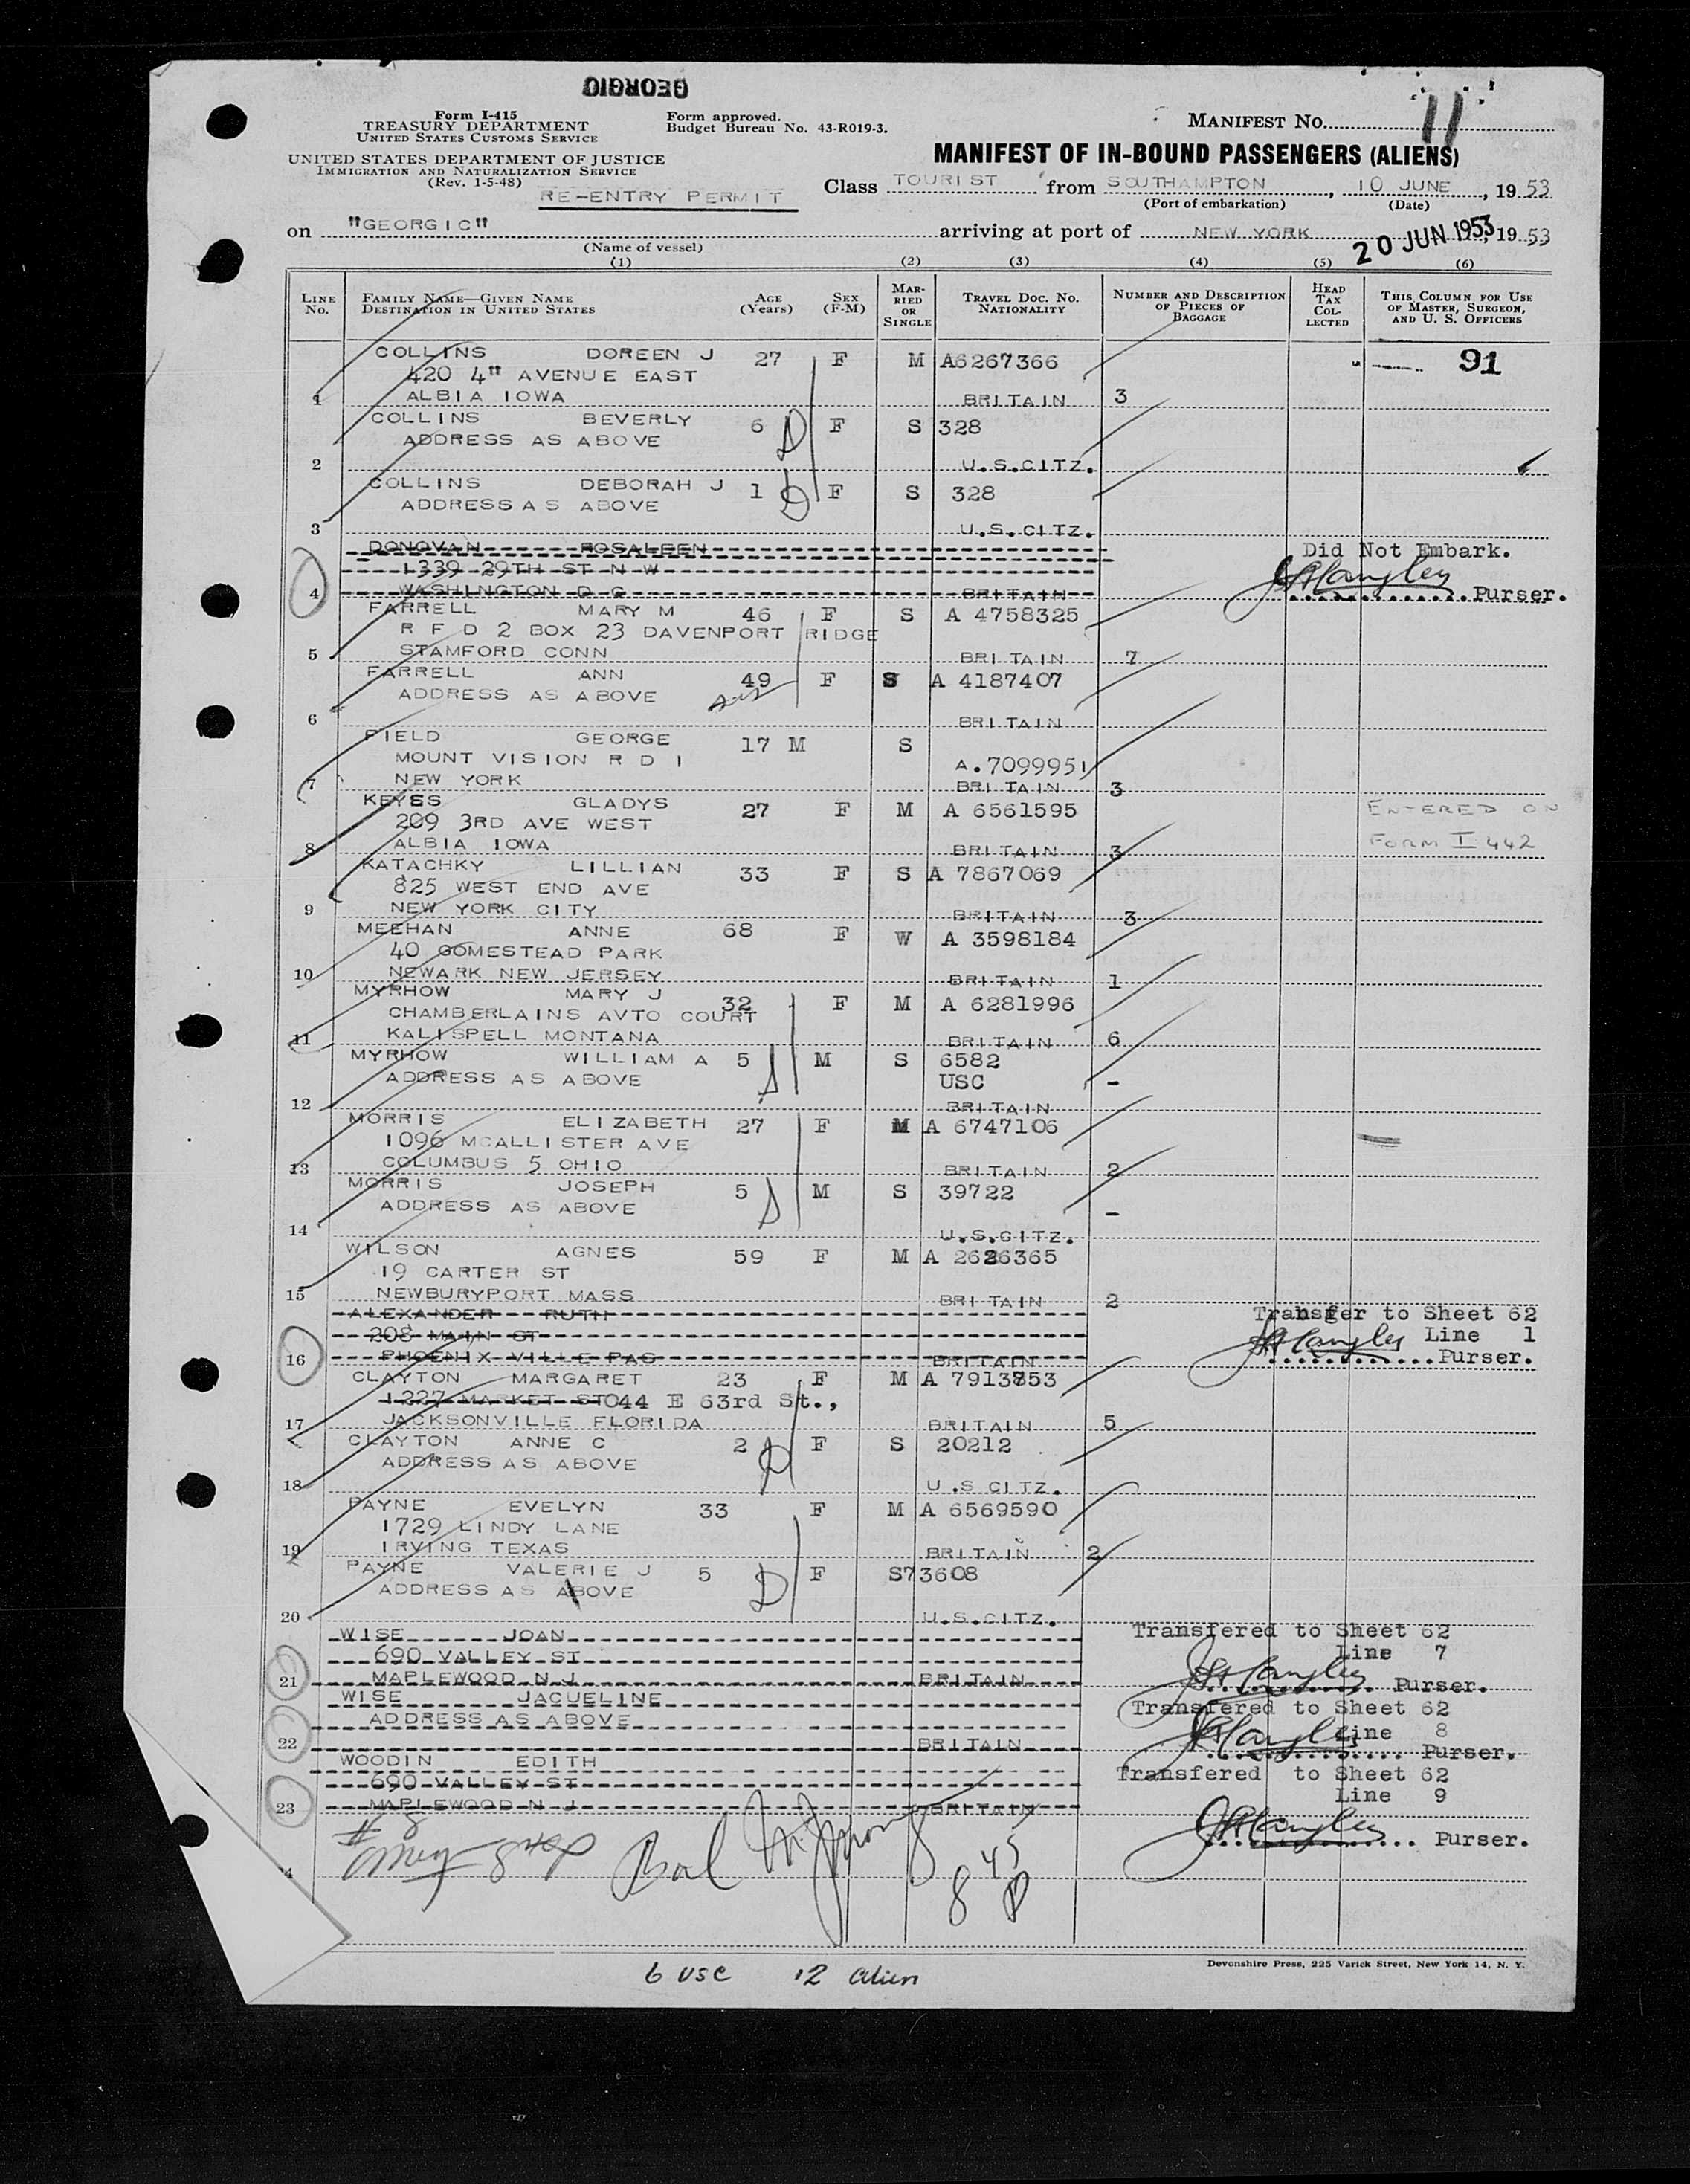 GEORGIC
Form I-415
TREASURY DEPARTMENT
UNITED STATES CUSTOMS SERVICE
Form approved.
Budget Bureau No. 43-R019-3.
MANIFEST NO. 11
UNITED STATES DEPARTMENT OF JUSTICE
IMMIGRATION AND NATURALIZATION SERVICE
(Rev. 1-5-48)
MANIFEST OF IN-BOUND PASSENGERS (ALIENS)
RE-ENTRY PERMIT
Class TOURIST from SOUTHAMPTON, 10 JUNE, 19 53
(Port of embarkation) (Date)
on "GEORGIC" arriving at port of NEW YORK 20 JUN 1953, 19 53
(Name of vessel)
(1) (2) (3) (4) (5) (6)
LINE NO. FAMILY NAME—GIVEN NAME DESTINATION IN UNITED STATES AGE (Years) SEX (F-M) MARRIED OR SINGLE TRAVEL DOC. NO. NATIONALITY NUMBER AND DESCRIPTION OF PIECES OF BAGGAGE HEAD TAX COLLECTED THIS COLUMN FOR USE OF MASTER, SURGEON, AND U. S. OFFICERS
COLLINS DOREEN J 27 F M A6267366 91
420 4" AVENUE EAST
1 ALBIA IOWA BRITAIN 3
COLLINS BEVERLY 6 D F S 328
ADDRESS AS ABOVE
2 U.S.CITZ.
COLLINS DEBORAH J 1 D F S 328
ADDRESS AS ABOVE
3 U.S.CITZ.
DONOVAN ROSALEEN Did Not Embark.
1339 29TH ST N W
4 WASHINGTON D C BRITAIN Purser.
FARRELL MARY M 46 F S A 4758325
R F D 2 BOX 23 DAVENPORT RIDGE
5 STAMFORD CONN BRITAIN 7
FARRELL ANN 49 F S A 4187407
ADDRESS AS ABOVE
6 BRITAIN
FIELD GEORGE 17 M S
MOUNT VISION R D 1 A.7099951
7 NEW YORK BRITAIN 3
KEYES GLADYS 27 F M A 6561595 ENTERED ON
209 3RD AVE WEST
8 ALBIA IOWA BRITAIN 3 FORM I 442
KATACHKY LILLIAN 33 F S A 7867069
825 WEST END AVE
9 NEW YORK CITY BRITAIN 3
MEEHAN ANNE 68 F W A 3598184
40 GOMESTEAD PARK
10 NEWARK NEW JERSEY BRITAIN 1
MYRHOW MARY J 32 F M A 6281996
CHAMBERLAINS AVTO COURT
11 KALISPELL MONTANA BRITAIN 6
MYRHOW WILLIAM A 5 D M S 6582
ADDRESS AS ABOVE USC -
12 BRITAIN
MORRIS ELIZABETH 27 F M A 6747106
1096 MCALLISTER AVE
13 COLUMBUS 5 OHIO BRITAIN 2
MORRIS JOSEPH 5 D M S 39722
ADDRESS AS ABOVE -
14 U.S.CITZ.
WILSON AGNES 59 F M A 2626365
19 CARTER ST
15 NEWBURYPORT MASS BRITAIN 2
ALEXANDER RUTH Transfer to Sheet 62
208 MAIN ST Line 1
16 PHOENIX VILLE PAS BRITAIN Purser.
CLAYTON MARGARET 23 F M A 7913853
1227 MARKET ST 044 E 63rd St.,
17 JACKSONVILLE FLORIDA BRITAIN 5
CLAYTON ANNE C 2 D F S 20212
ADDRESS AS ABOVE
18 U.S CITZ.
PAYNE EVELYN 33 F M A 6569590
1729 LINDY LANE
19 IRVING TEXAS BRITAIN 2
PAYNE VALERIE J 5 D F S 73608
ADDRESS AS ABOVE
20 U.S.CITZ.
WISE JOAN Transfered to Sheet 62
690 VALLEY ST Line 7
21 MAPLEWOOD N J BRITAIN Purser.
WISE JACQUELINE Transfered to Sheet 62
ADDRESS AS ABOVE Line 8
22 BRITAIN Purser.
WOODIN EDITH Transfered to Sheet 62
690 VALLEY ST Line 9
23 MAPLEWOOD N J BRITAIN
Purser.
8 45 P
Devonshire Press, 225 Varick Street, New York 14, N. Y.
6 USC 12 alien